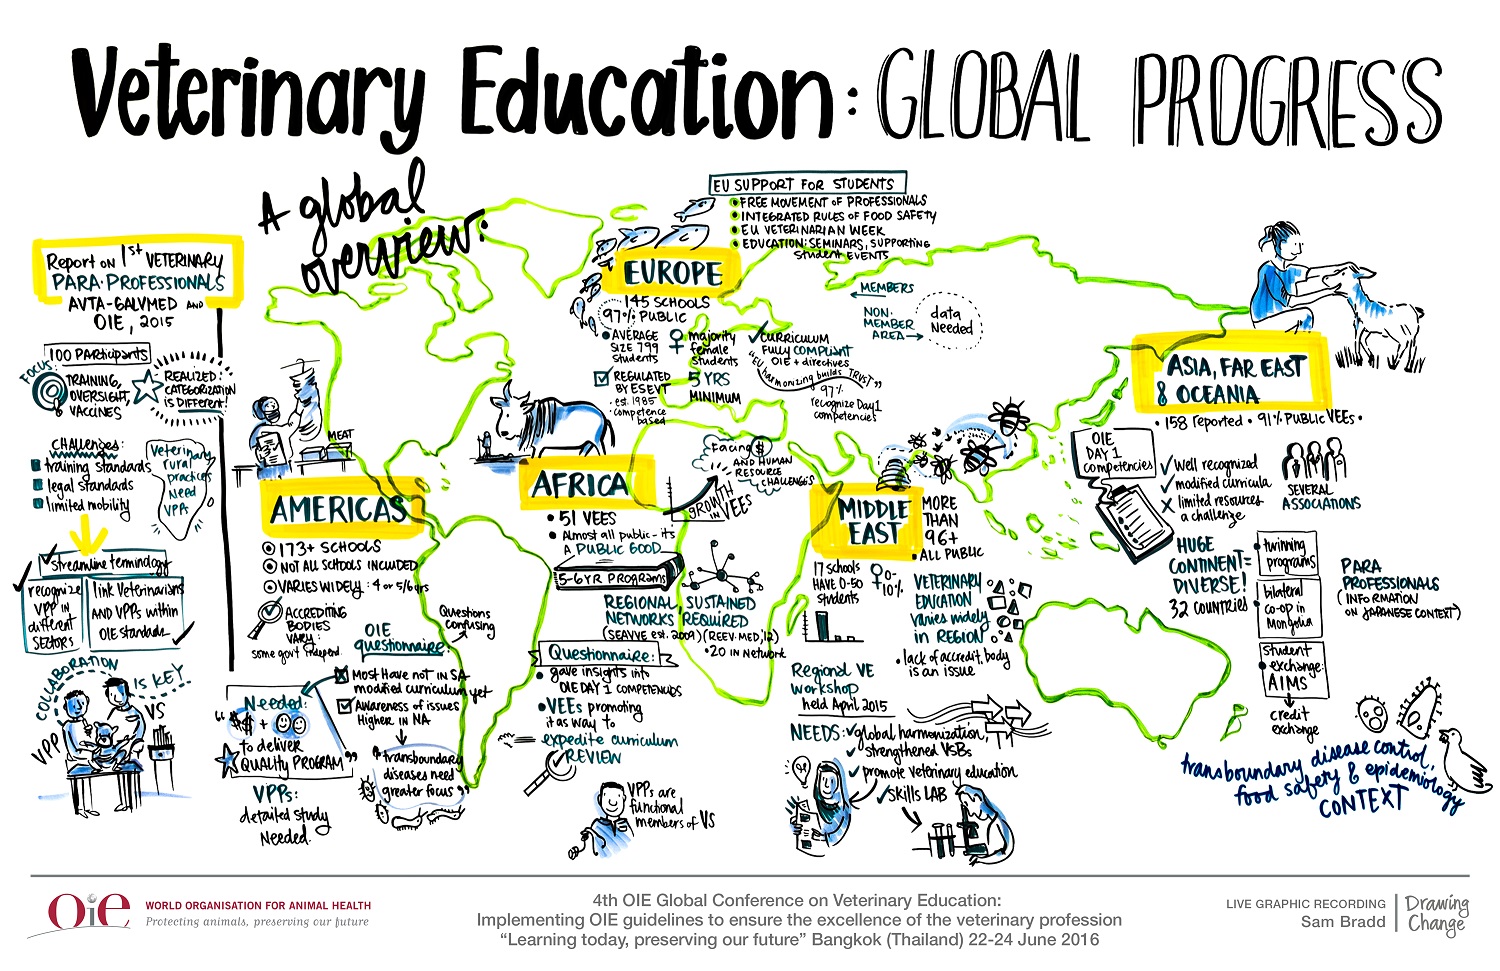 Veterinary Education: GLOBAL PROGRESS
A global
overview:
Report on 1st VETERINARY
PARA-PROFESSIONALS
AVTA-GALVMED AND
OIE, 2015
100 PARTICIPANTS
FOCUS:
TRAINING,
OVERSIGHT,
VACCINES
REALIZED:
CATEGORIZATION
IS DIFFERENT!
CHALLENGES:
training standards
legal standards
limited mobility
Veterinary
rural
practices
Need
VPA
Streamline terminology
recognize
VPP IN
different
SECTORS
link Veterinarians
AND VPPs within
OIE standards
COLLABORATION
IS KEY
VPP
VS
MEAT
AMERICAS
173+ SCHOOLS
NOT ALL SCHOOLS INCLUDED
VARIES WIDELY: 4 or 5/6yrs
ACCREDITING
BODIES
VARY:
some gov't independ.
Questions
confusing
OIE
questionnaire:
Most Have not in SA
modified curriculum yet
Awareness of issues
Higher in NA
"transboundary
diseases need
greater focus"
Needed:
"$$ +
to deliver
QUALITY PROGRAM"
VPPs:
detailed study
Needed.
EU SUPPORT FOR STUDENTS
• FREE MOVEMENT OF PROFESSIONALS
• INTEGRATED RULES OF FOOD SAFETY
• EU VETERINARIAN WEEK
• EDUCATION: SEMINARS, SUPPORTING
student EVENTS
EUROPE
145 SCHOOLS
97% PUBLIC
• AVERAGE
SIZE 799
students
♀ majority
female
students
REGULATED
BY ESEVT
• est. 1985
• competence
based
5 YRS
MINIMUM
✓ CURRICULUM
FULLY COMPLIANT
OIE + directives
"EU harmonizing builds TRUST"
97%
recognize Day 1
competencies
MEMBERS
NON-
MEMBER
AREA
data
Needed
AFRICA
• 51 VEES
• Almost all public - it's
A PUBLIC GOOD
5-6 YR PROGRAMS
Facing $
AND HUMAN
RESOURCE
CHALLENGES
GROWTH
IN VEES
REGIONAL, SUSTAINED
NETWORKS REQUIRED
(SEAVVE est. 2009) (REEV-MED, '12)
• 20 IN Network
Questionnaire:
• gave insights into
OIE DAY 1 COMPETENCIES
• VEEs promoting
it as way to
expedite curriculum
REVIEW
VPPs are
functional
members of VS
MIDDLE
EAST
MORE
THAN
96+
• ALL PUBLIC
17 schools
HAVE 0-50
students
♀ 0-
10%
VETERINARY
EDUCATION
varies widely
in REGION
• lack of accredit. body
is an issue
Regional VE
Workshop
held April 2015
NEEDS: ✓ global harmonization,
✓ strengthened VSBs
✓ promote veterinary education
✓ skills LAB
ASIA, FAR EAST
& OCEANIA
• 158 reported • 91% PUBLIC VEEs •
OIE
DAY 1
competencies
✓ well recognized
✓ modified curricula
X limited resources
a challenge
SEVERAL
ASSOCIATIONS
HUGE
CONTINENT =
DIVERSE!
32 COUNTRIES
• twinning
programs
• bilateral
co-op in
Mongolia
student
• exchange:
AIMS
credit
exchange
PARA
PROFESSIONALS
(INFORMATION
ON JAPANESE CONTEXT)
transboundary disease control,
food safety & epidemiology
CONTEXT
OIE
WORLD ORGANISATION FOR ANIMAL HEALTH
Protecting animals, preserving our future
4th OIE Global Conference on Veterinary Education:
Implementing OIE guidelines to ensure the excellence of the veterinary profession
"Learning today, preserving our future" Bangkok (Thailand) 22-24 June 2016
LIVE GRAPHIC RECORDING
Sam Bradd
Drawing
Change